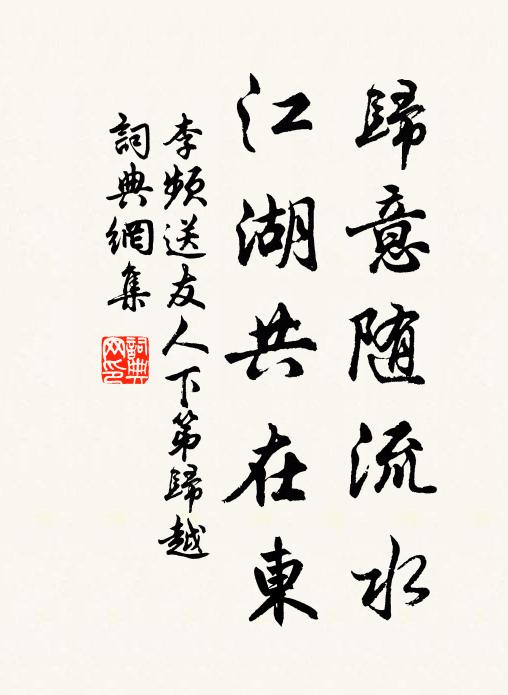 歸意隨流水
江湖共在東
李頻送友人下第歸越
詞典網集
詞典
网印